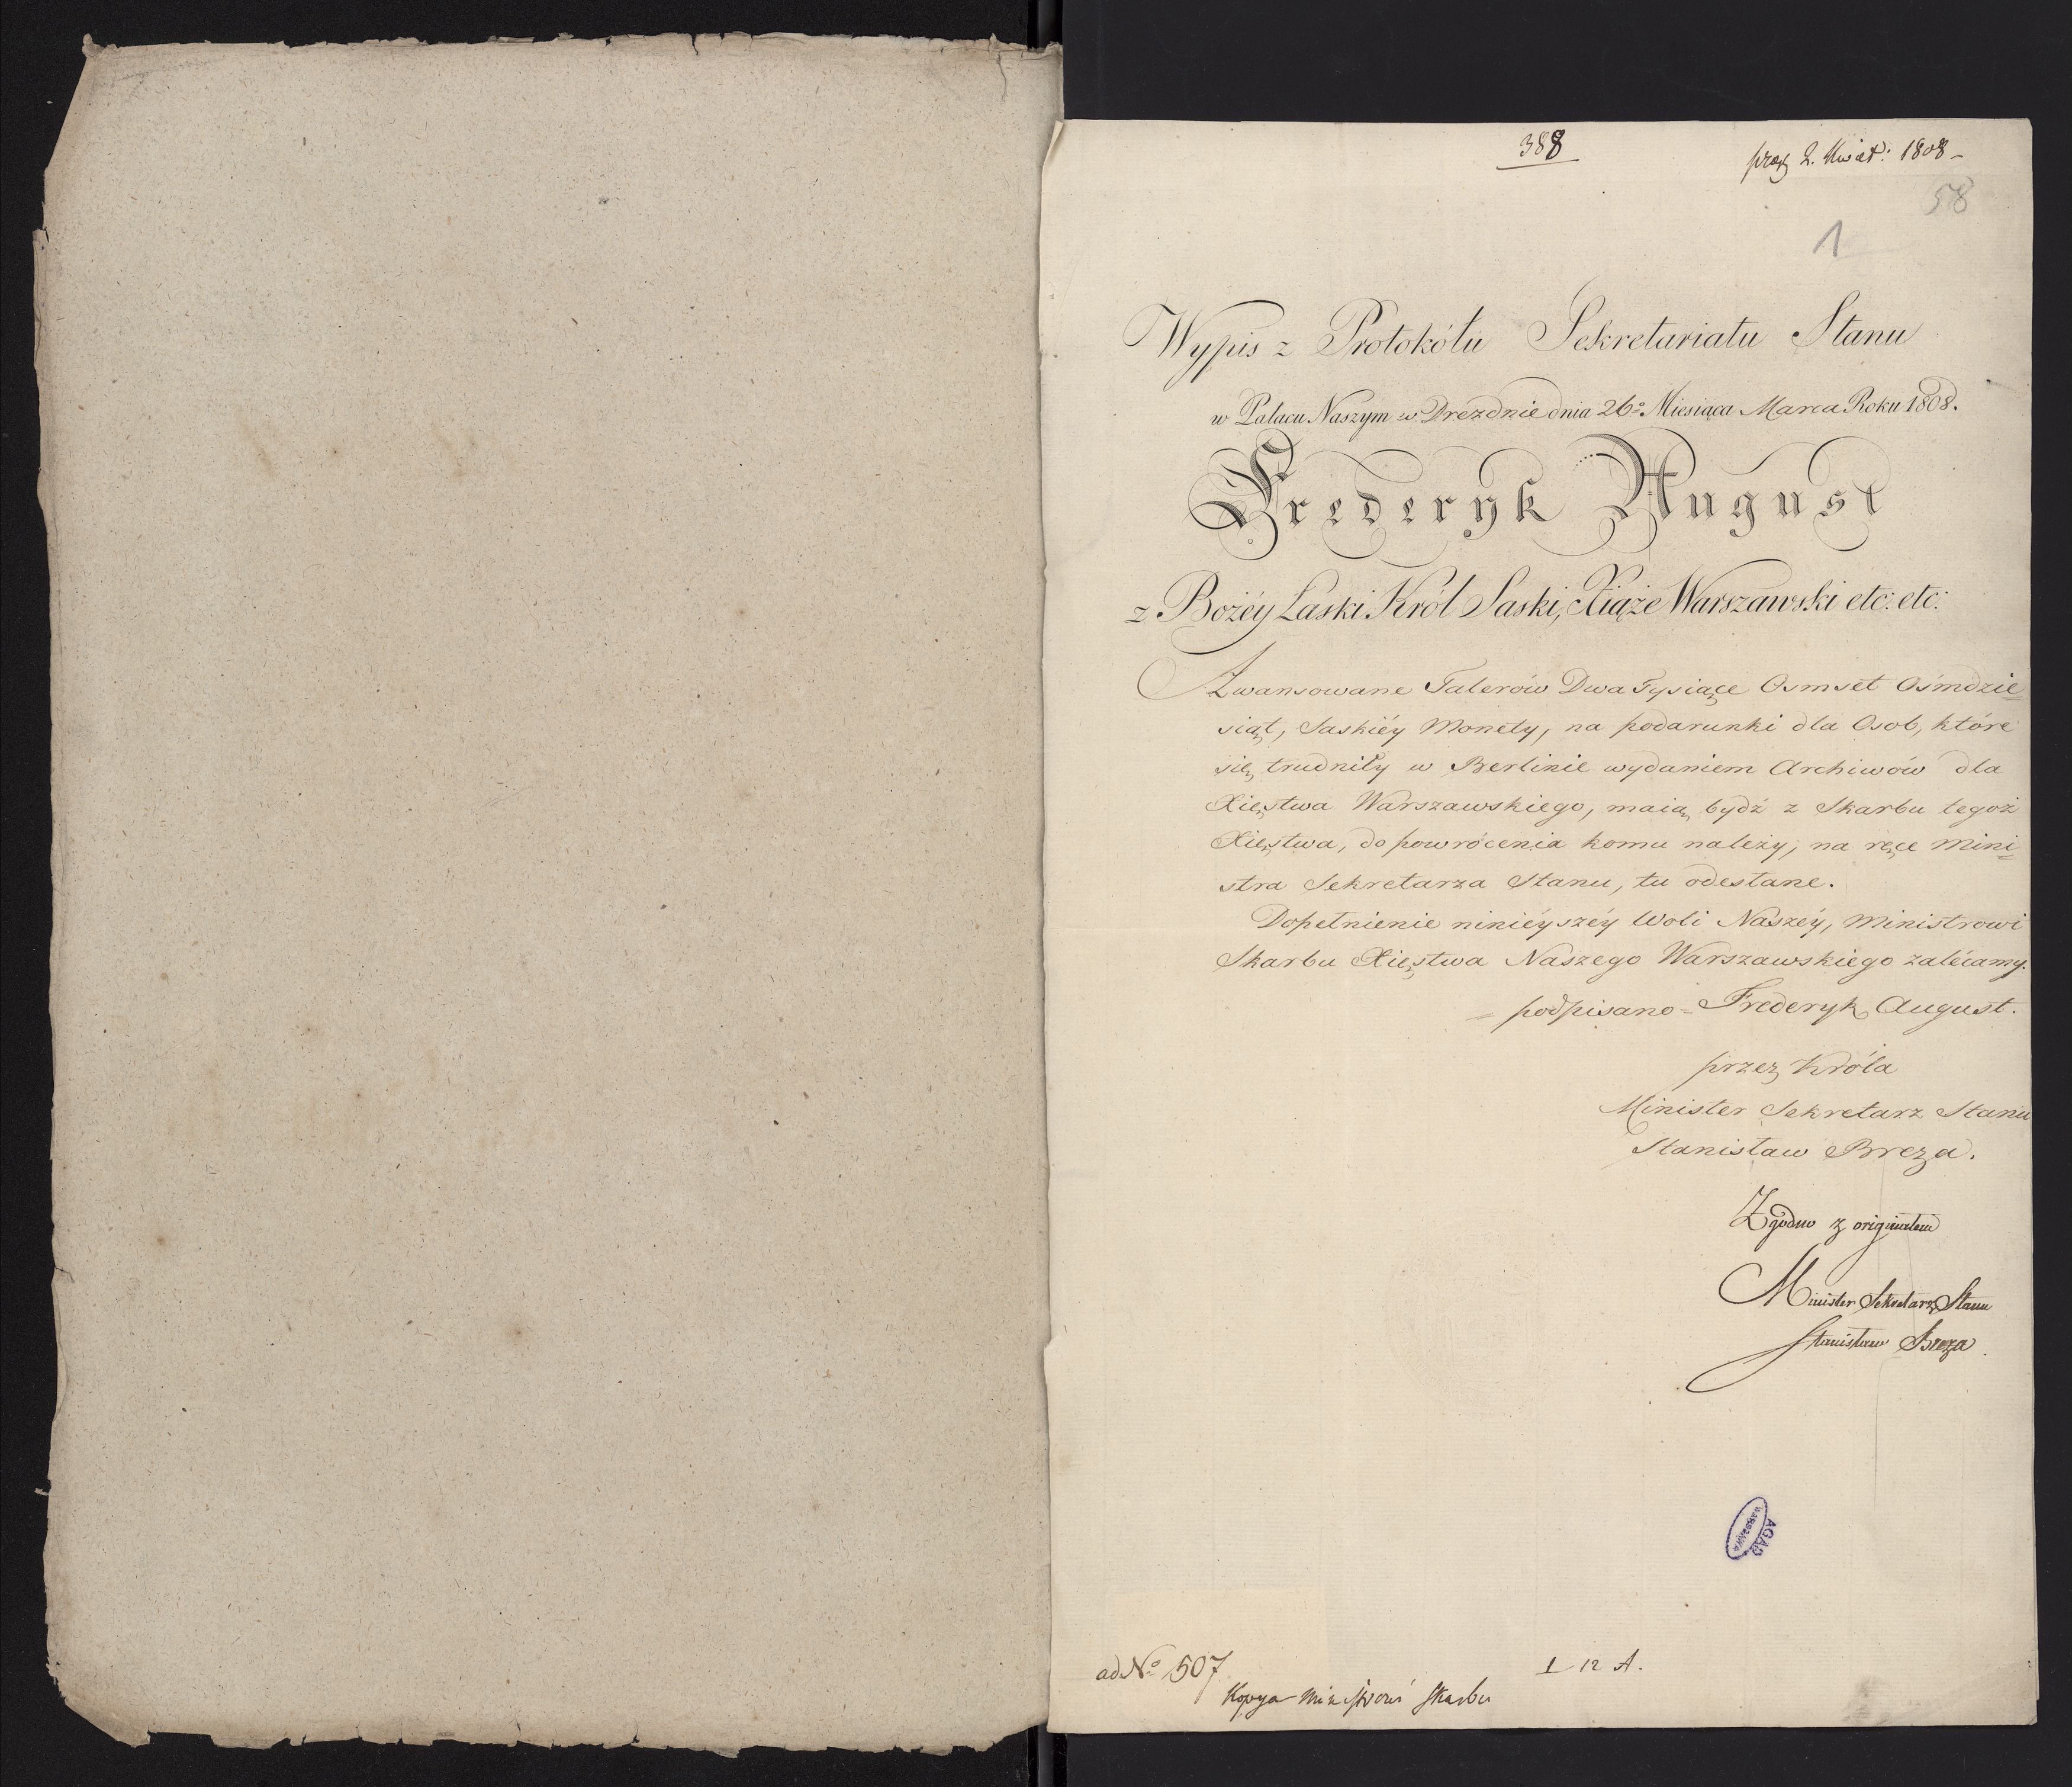 388
prez 2. Kwiet: 1808 –
58
1
Wypis z Protokółu Sekretariatu Stanu
w Pałacu Naszym w Dreznie dnia 26o Miesiąca Marca Roku 1808.
Frederyk August
z Bożéy Łaski Król Saski, Xiąże Warszawski etc: etc:
Awansowane Talerów Dwa Tysiące Osmset Ośmdzie=
siąt, Saskiéy Monety, na podarunki dla Osob, które
się trudniły w Berlinie wydaniem Archiwów dla
Xięstwa Warszawskiego, maią bydź z Skarbu tegoż
Xięstwa, do powrócenia komu należy, na ręce Mini=
stra Sekretarza Stanu, tu odesłane.
Dopełnienie niniéyszéy Woli Naszéy, Ministrowi
Skarbu Xięstwa Naszego Warszawskiego zalécamy.
= podpisano = Frederyk August.
przez Króla
Minister Sekretarz Stanu
Stanisław Breza.
Zgodno z originałem
Minister Sekretarz Stanu
Stanisław Breza
AGAD
WARSZAWA
ad No 507
1 12 A.
Kopya Ministrowi Skarbu